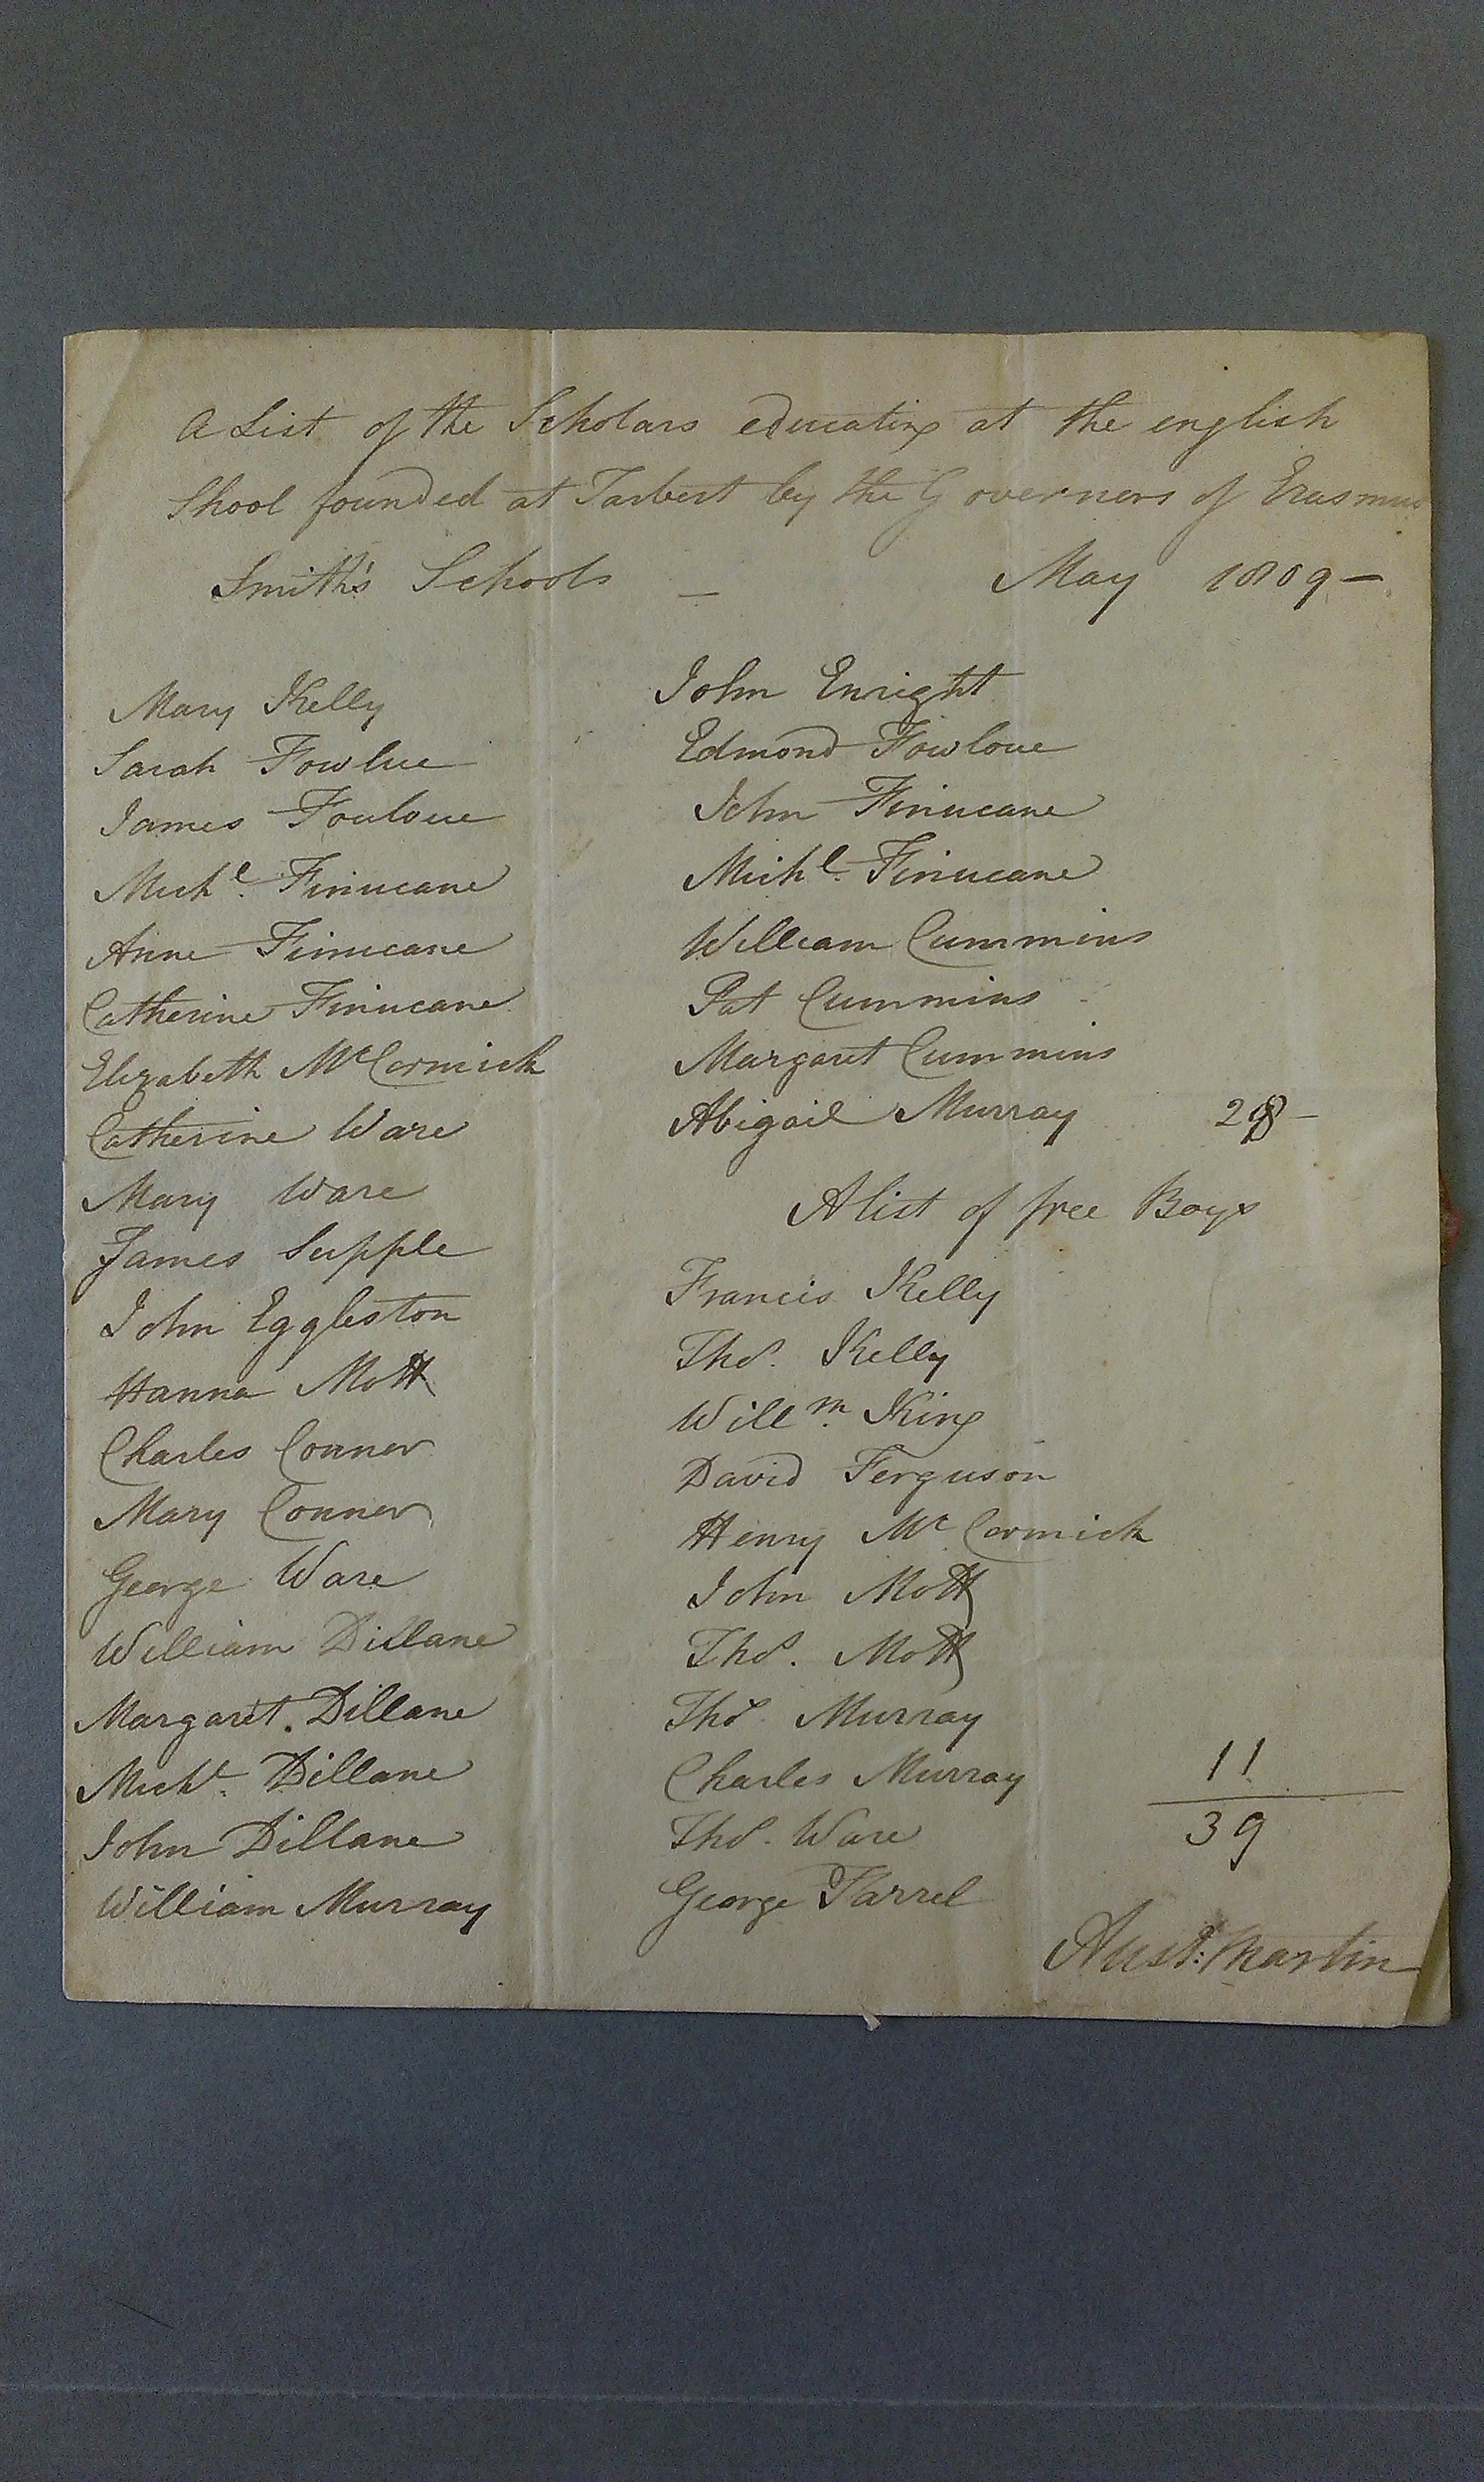 A List of the Scholars educating at the english
Shool founded at Tarbert by the Governors of Erasmus
Smith's Schools — May 1809 —
Mary Kelly
Sarah Fowlue
James Fouloue
Michl. Finucane
Anne Finucane
Catherine Finucane
Elizabeth McCormick
Catherine Ware
Mary Ware
James Supple
John Eggleston
Hanna Mott
Charles Conner
Mary Conner
George Ware
William Dillane
Margaret Dillane
Michl. Dillane
John Dillane
William Murray
John Enright
Edmond Fowloue
John Finucane
Michl. Finucane
William Cummins
Pat Cummins
Margaret Cummins
Abigail Murray 28 —
A list of free Boys
Francis Kelly
Thos. Kelly
Willm. King
David Ferguson
Henry Mc Cormick
John Mott
Thos. Mott
Thos Murray
Charles Murray 11
Thos. Ware 39
George Farrel
Aust: Martin